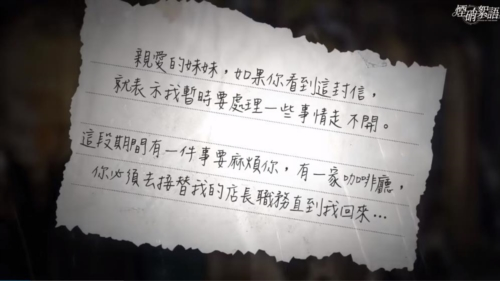 煙硝絮語
親愛的妹妹，如果你看到這封信，
就表示我暫時要處理一些事情走不開。
這段期間有一件事要麻煩你，有一家咖啡廳，
你必須去接替我的店長職務直到我回來…